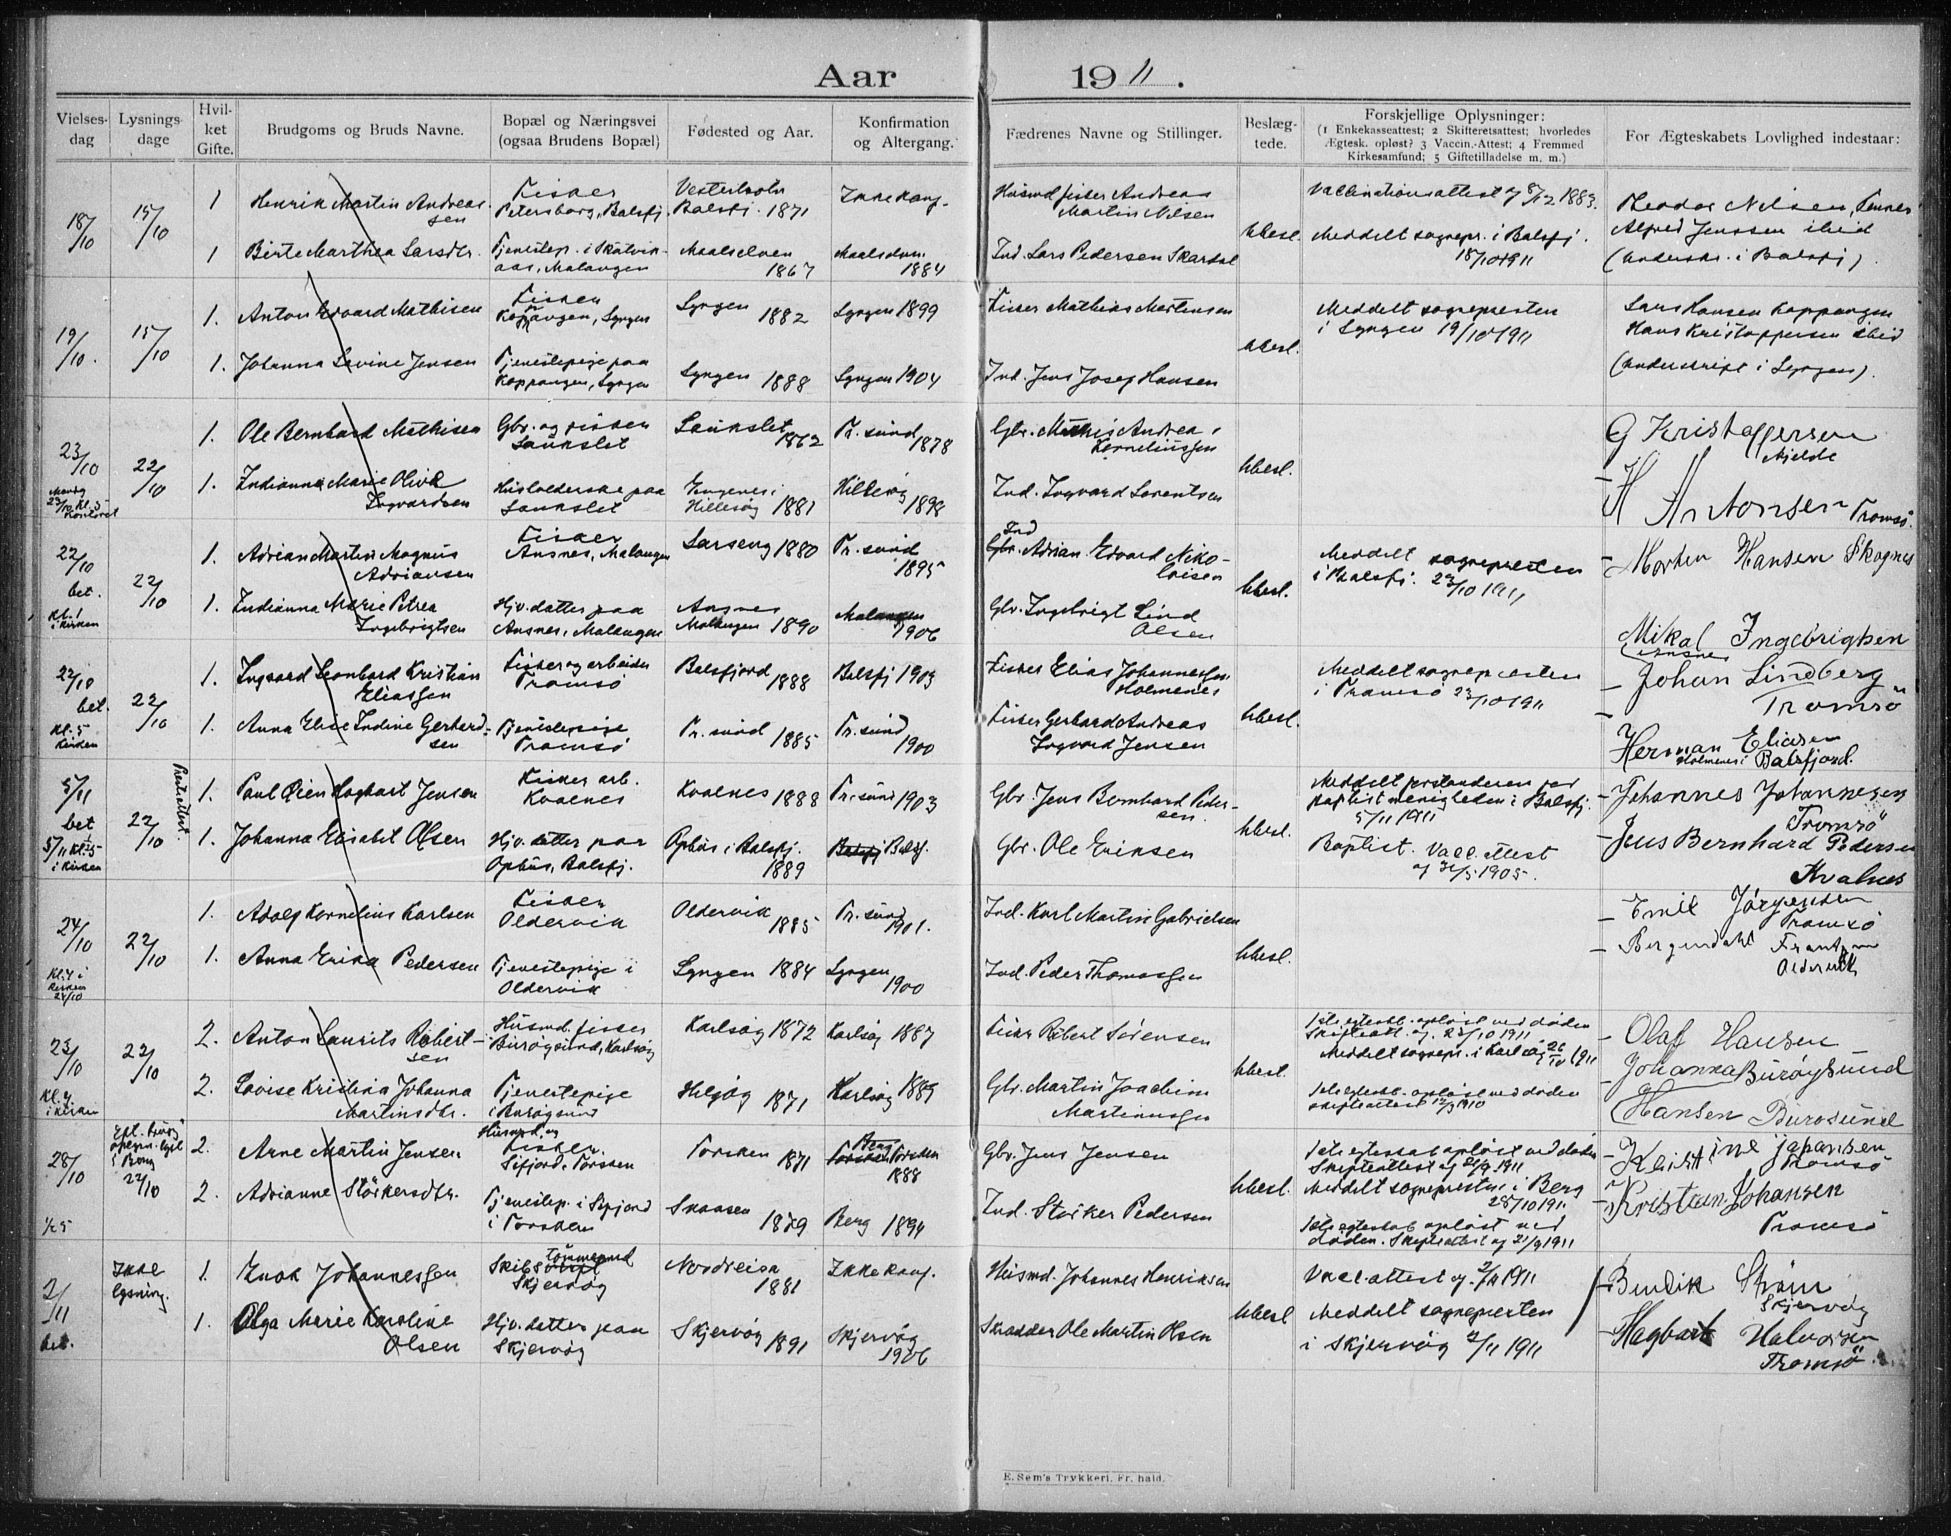 Aar 1911.
Vielses-dag
Lysnings-dage
Hvil-ket Gifte.
Brudgoms og Bruds Navne.
Bopæl og Næringsvei (ogsaa Brudens Bopæl)
Fødested og Aar.
Konfirmation og Altergang.
Fædrenes Navne og Stillinger.
Beslæg-tede.
Forskjellige Oplysninger:
(1 Enkekasseattest; 2 Skifteretsattest; hvorledes
Ægtesk. opløst? 3 Vaccin.-Attest; 4 Fremmed
Kirkesamfund; 5 Giftetilladelse m. m.)
For Ægteskabets Lovlighed indestaar:
18/10 15/10 1 Henrik Martin Andreassen Fisker Petersborg, Balsfj. Balsfj. 1871 Ikke konf. Husmd. fisker Andreas Martin Nilsen Ubesl. Vaccinationsattest af 1883. Theodor Nilsen,
1 Birte Marthea Larsdtr. Tjenestep. i Skutvik aas, Malangen Maalselven 1867 Maalselven 1884 Ind. Lars Pedersen Skardal Meddelt sognepr. i Balsfj. 18/10 1911 Alfred Jenssen ibid (underskr. i Balsfj).
19/10. 15/10 1. Anton Edvard Mathisen Fisker Koppangen, Lyngen Lyngen 1882 Lyngen 1899 Fisker Mathias Martinsen Ubesl. Meddelt sognepresten i Lyngen 19/10 1911 Lars Hansen Koppangen
1. Johanna Levine Jensen Tjenestepige paa Koppangen, Lyngen Lyngen 1888 Lyngen 1904 Ind. Jens Josep Hansen Hans Kristoffersen ibid (underskript i Lyngen).
23/10 22/10 1. Ole Bernhard Mathisen Gbr. og fisker Laukslet Laukslet 1862 Tr. sund 1878 Gbr. Mathis Andreas Korneliussen Ubesl. G Kristoffersen Mjelde
Mandag 23/10 Kl. 5 Kontoret 1. Indianna Marie Oliva Ingvardsen Husholderske paa Laukslet Hillesøy 1881 Hillesøy 1898 Ind. Ingvard Lorentsen H Antonsen Tromsø.
22/10 bet. 22/10 1. Adrian Martin Magnus Adriansen Fisker Ansnes, Malangen Larseng 1880 Tr. sund 1895 Ind Gbr. Adrian Edvard Nikolaisen Ubesl. Meddelt sognepresten i Balsfj. 23/10 1911 Morten Hansen Skognes
Kl. 1 i kirken 1. Indianna Marie Petrea Ingebrigtsen Hjv. datter paa Ansnes, Malangen Ansnes Malangen 1890 Malangen 1906 Gbr. Ingebrigt Lind Olsen Mikal Ingebrigtsen Ansnes
22/10 bet. 22/10 1. Ingvard Leonhard Kristian Eliassen Fisker og arbeider Tromsø Balsfjord 1888 Balsfj 1903 Fisker Elias Johannessen Holmenes Ubesl. Meddelt sognepresten i Tromsø 23/10 1911 Johan Lindberg Tromsø
Kl. 5 Kirken 1. Anna Elise Indine Gerhardsen Tjenestepige Tromsø Tr. sund 1885 Tr. sund 1900 Fisker Gerhard Andreas Ingvard Jensen Herman Eliasen Holmenes i Balsfjord.
5/11 bet 22/10 1. Paul Øien Hagbart Jensen Fisker arb. Kvalnes Kvalnes 1888 Tr. sund 1903 Gbr. Jens Bernhard Pedersen Ubesl. Meddelt forstanderen for baptistmenigheden i Balsfj. 5/11 1911 Johannes Johannesen Tromsø
5/11 Kl. 5 i kirken 1. Johanna Elisabet Olsen Hjv. datter paa Ophus, Balsfj. Ophus i Balsfj. 1889 Balsfj Balsfj. Gbr. Ole Eriksen Baptist. Vacc. attest af 31/5 1905. Jens Bernhard Pedersen Kvalnes
24/10 22/10 1. Adolf Kornelius Karlsen Fisker Oldervik Oldervik 1885 Tr. sund 1901. Ind. Karl Martin Gabrielsen Ubesl. Emil Jørgensen Tromsø
Kl. 4 i Kirken 24/10 1. Anna Erika Pedersen Tjenestepige i Oldervik Lyngen 1884 Lyngen 1900 Ind. Peder Thomassen Bergendahl Frantzen Oldervik
23/10 22/10 2. Anton Laurits Robertsen Husmd. fisker i Burøysund, Karlsøy Karlsøy 1872 Karlsøy 1887 Fisker Robert Sørensen Ubesl. 1ste egtesk. opløst ved døden Skifteatt. af 23/10 1911 Meddelt sognepr. i Karlsøy 26/10 1911 Olaf Hansen
Kl. 4 i kirken 2. Lovise Kristina Johanna Martinsdtr. Tjenestepige i Burøysund Helgøy 1871 Karlsøy 1885 Gbr. Martin Joachim Martinussen 1ste egtesk. opløst ved døden skifteattest 12/9 1910 Johanna Burøysund Hansen Burøsund
28/10 22/10 2. Arne Martin Jensen Husmd. og Fisker Sifjord, Torsken Torsken 1871 Torsken Berg Torsken 1888 Gbr. Jens Jensen Ubesl. 1ste egteskab opløst ved døden Skifteattest af 21/9 1911 Kristine Johansen Tromsø
2. Adrianne Størkersdtr. Tjenestep. i Sifjord i Torsken Skaasen 1879 Berg 1894 Ind. Størker Pedersen Meddelt sognepresten i Berg 28/10 1911 1ste egteskab opløst ved døden. Skifteattest af 21/9 1911 Kristian Johansen Tromsø
2/11 bet. Ikke lysning. 1. Enok Johannessen Skibstømmermd Skjervøy Nordreisa 1881 Ikke konf. Husmd. Johannes Henriksen Ubesl. Vacc. attest af 2/11 1911 Bendik Strøm Skjervøy
1. Olga Marie Karoline Olsen Hjv. datter paa Skjervøy Skjervøy 1891 Skjervøy 1906 Skrædder Ole Martin Olsen Meddelt sognepresten i Skjervøy 2/11 1911 Hagbart Halvorsen Tromsø
E. Sem's Trykkeri, Fr. hald.